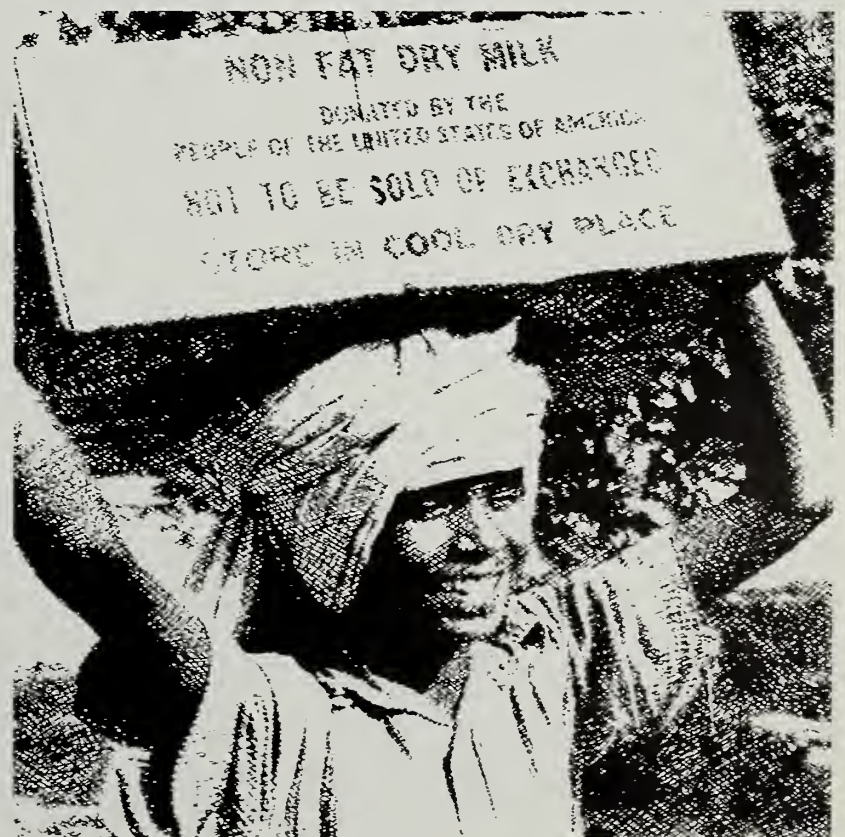 NON FAT DRY MILK
DONATED BY THE
PEOPLE OF THE UNITED STATES OF AMERICA
NOT TO BE SOLD OR EXCHANGED
STORE IN COOL DRY PLACE